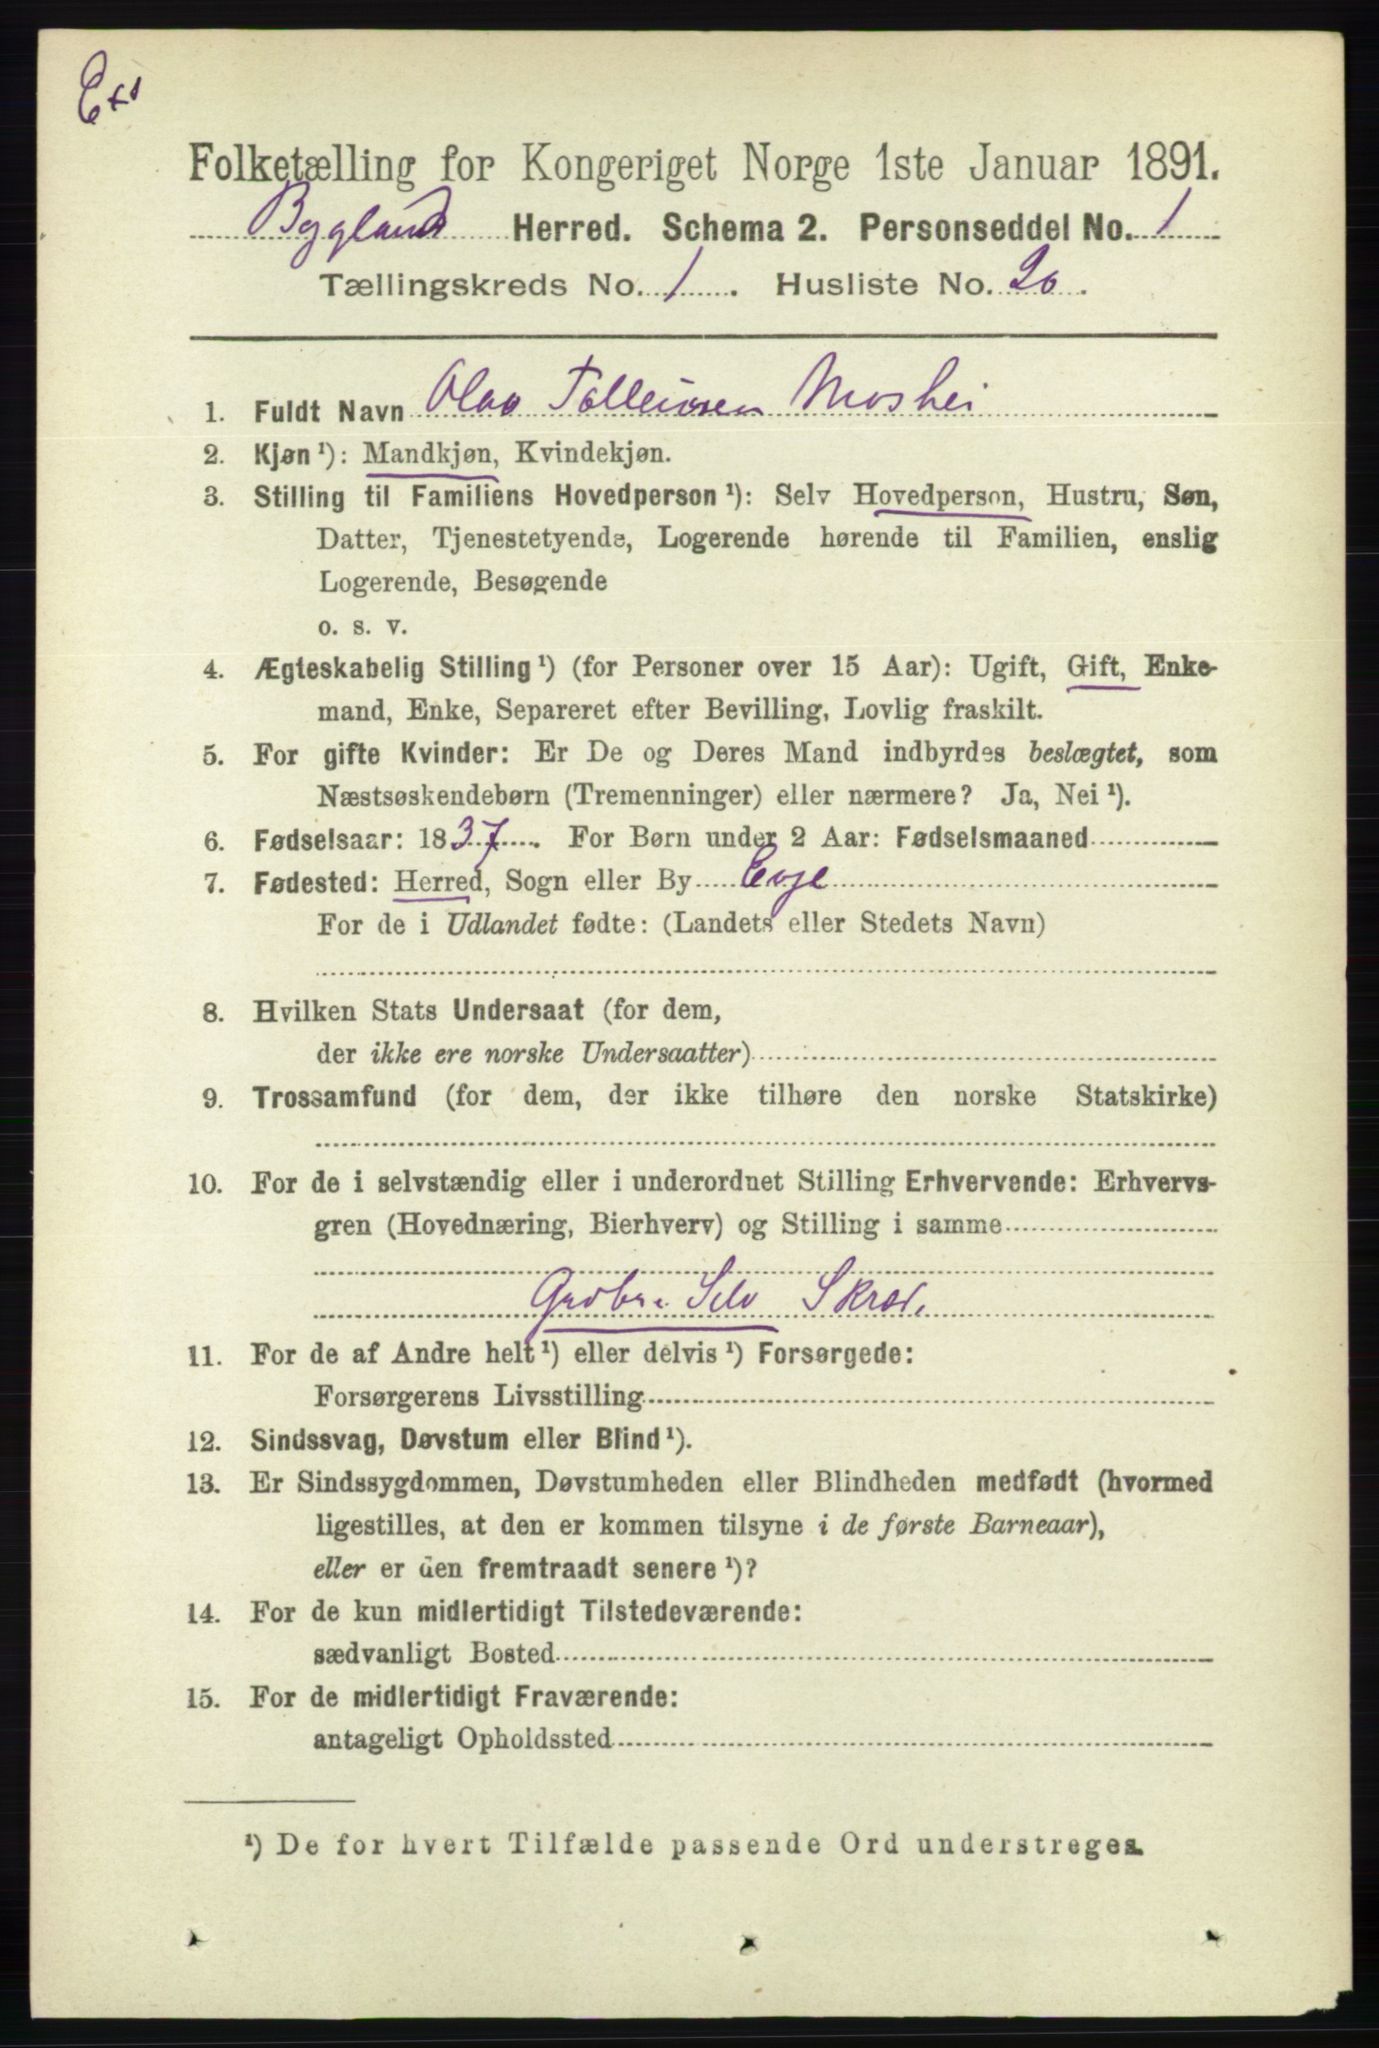 Folketælling for Kongeriget Norge 1ste Januar 1891.
Bygland Herred. Schema 2. Personseddel No. 1
Tællingskreds No. 1. Husliste No. 20.
1. Fuldt Navn Olav Tolleivsen Moshei
2. Kjøn ¹): Mandkjøn, Kvindekjøn.
3. Stilling til Familiens Hovedperson ¹): Selv Hovedperson, Hustru, Søn,
Datter, Tjenestetyende, Logerende hørende til Familien, enslig
Logerende, Besøgende
o. s. v.
4. Ægteskabelig Stilling ¹) (for Personer over 15 Aar): Ugift, Gift, Enke-
mand, Enke, Separeret efter Bevilling, Lovlig fraskilt.
5. For gifte Kvinder: Er De og Deres Mand indbyrdes beslægtet, som
Næstsøskendebørn (Tremenninger) eller nærmere? Ja, Nei ¹).
6. Fødselsaar: 1837. For Børn under 2 Aar: Fødselsmaaned
7. Fødested: Herred, Sogn eller By Evje
For de i Udlandet fødte: (Landets eller Stedets Navn)
8. Hvilken Stats Undersaat (for dem,
der ikke ere norske Undersaatter)
9. Trossamfund (for dem, der ikke tilhøre den norske Statskirke)
10. For de i selvstændig eller i underordnet Stilling Erhvervende: Erhvervs-
gren (Hovednæring, Bierhverv) og Stilling i samme
Grdbr. Selv Skræd.
11. For de af Andre helt ¹) eller delvis ¹) Forsørgede:
Forsørgerens Livsstilling
12. Sindssvag, Døvstum eller Blind ¹).
13. Er Sindssygdommen, Døvstumheden eller Blindheden medfødt (hvormed
ligestilles, at den er kommen tilsyne i de første Barneaar),
eller er den fremtraadt senere ¹)?
14. For de kun midlertidigt Tilstedeværende:
sædvanligt Bosted
15. For de midlertidigt Fraværende:
antageligt Opholdssted
¹) De for hvert Tilfælde passende Ord understreges.